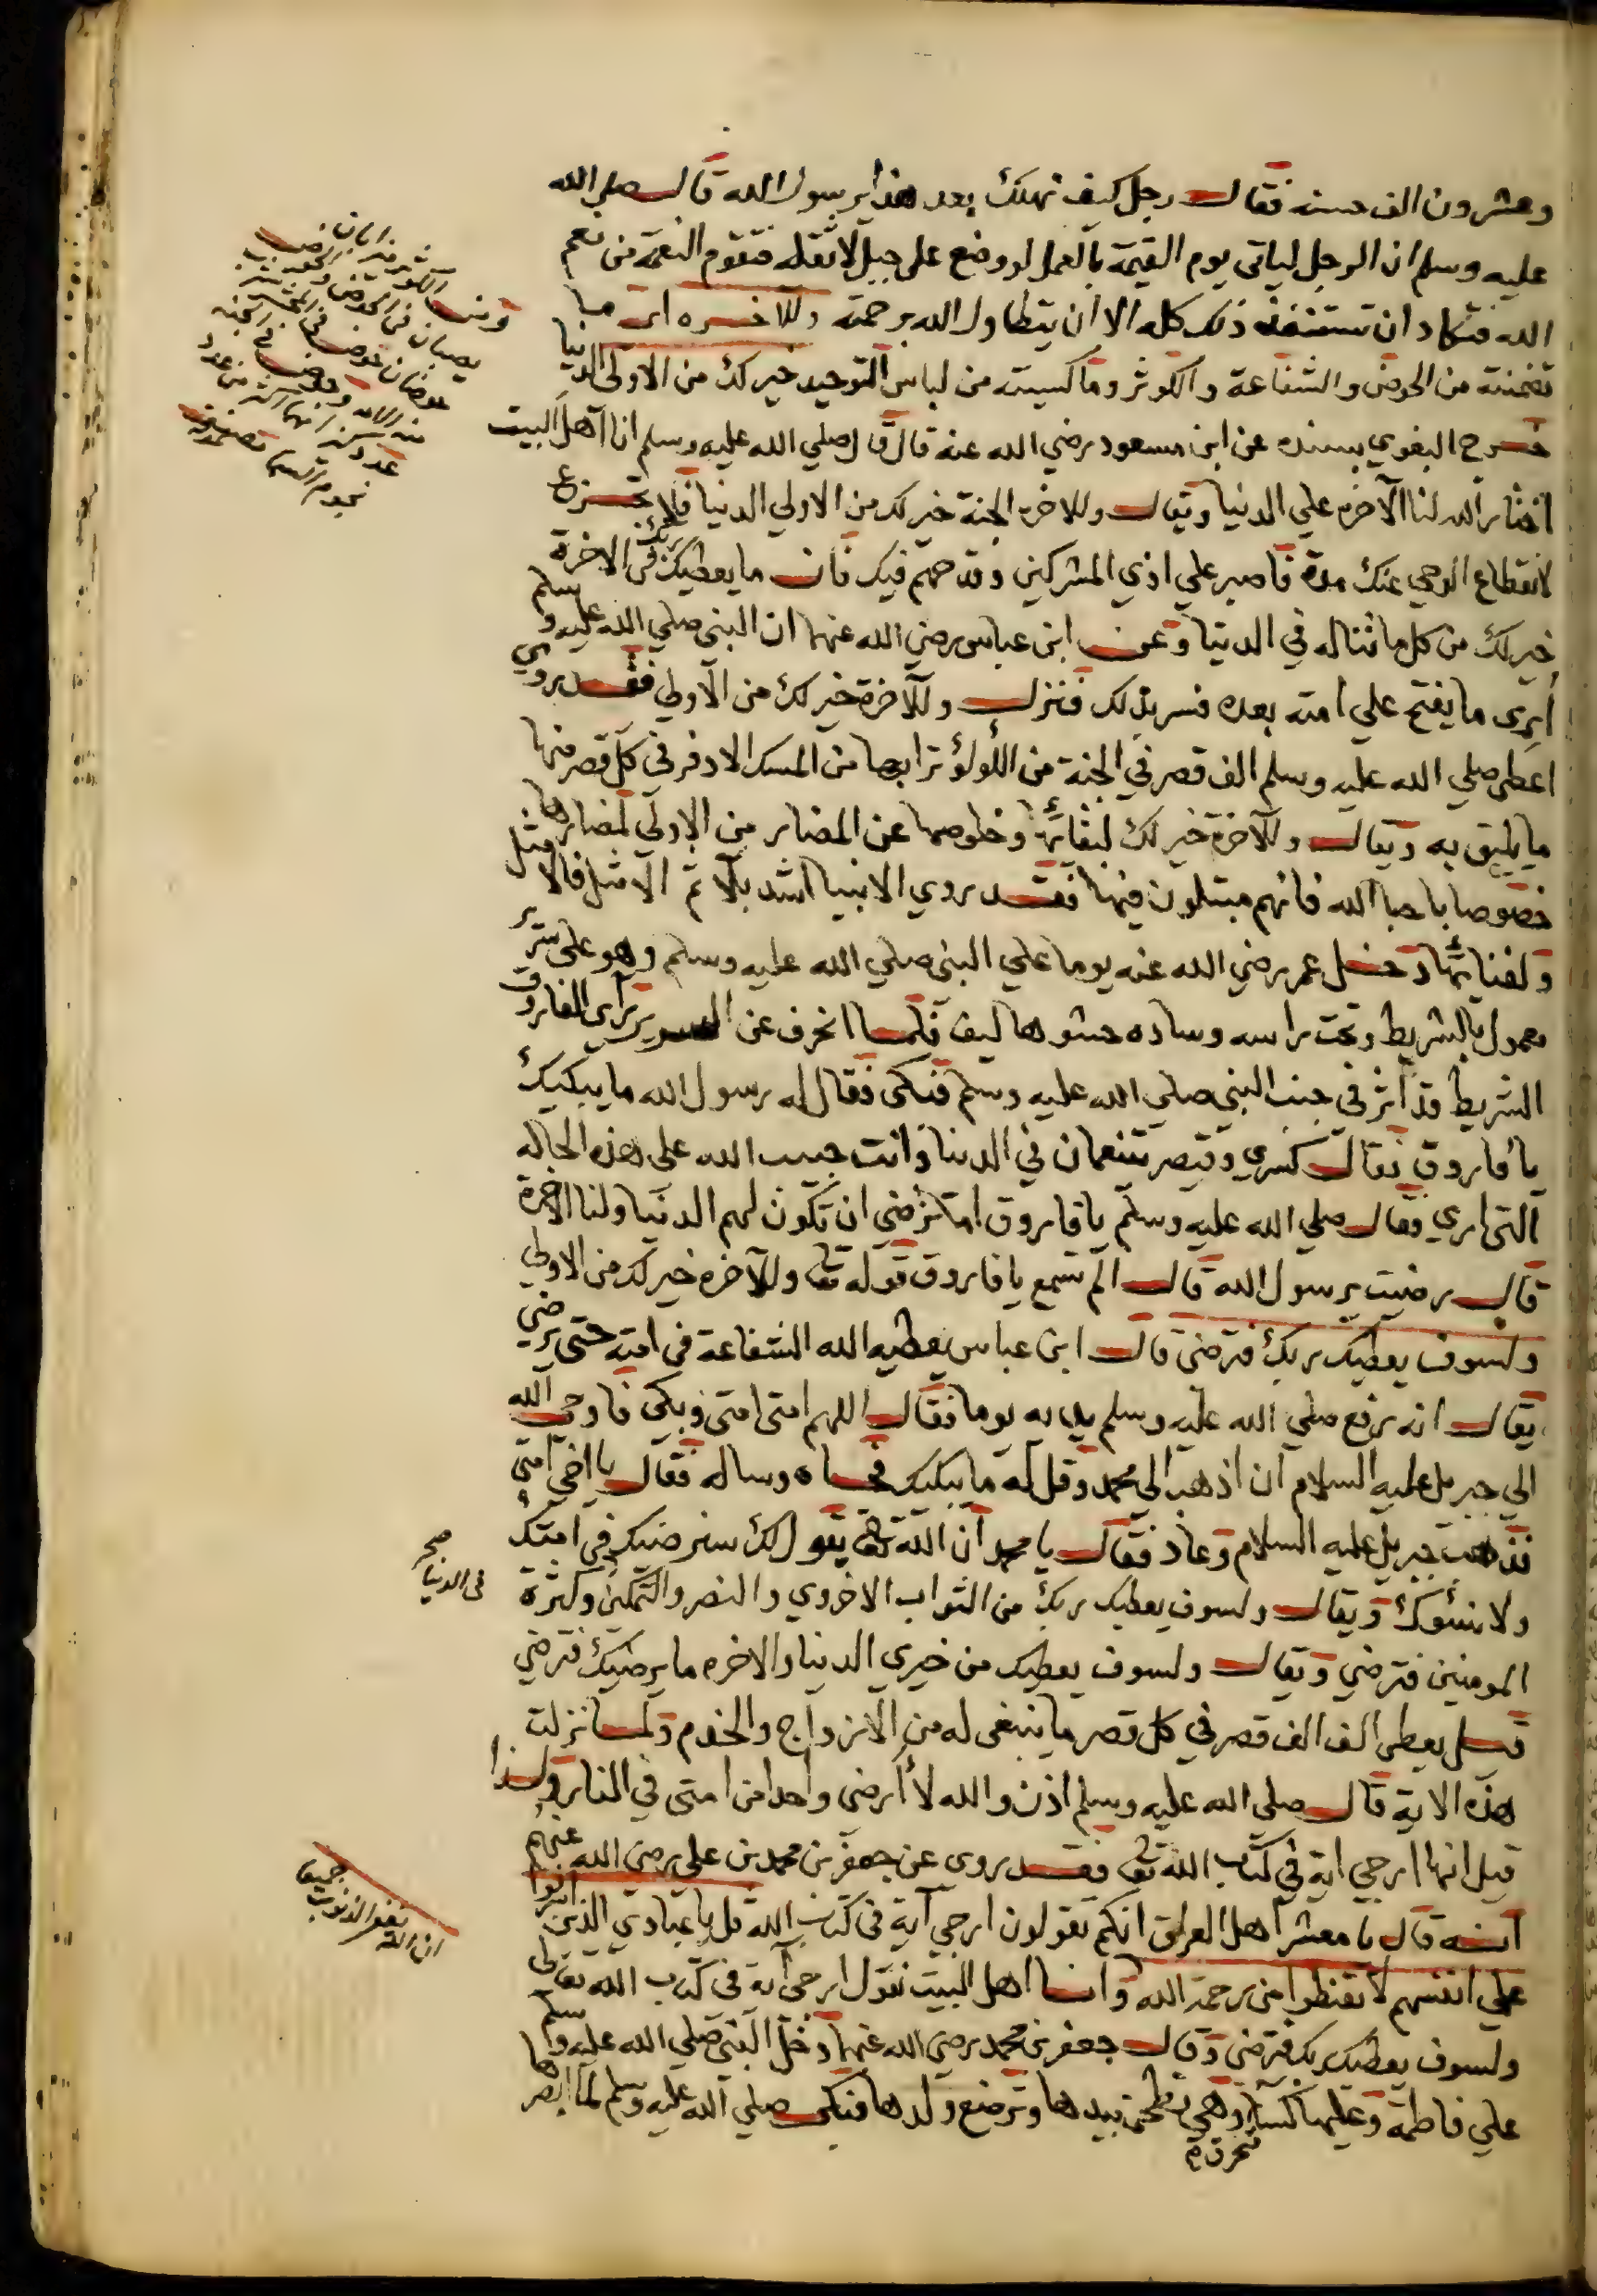 وعشرون الف حسنة فقال رجل كيف نهلك بعد هذا يرسول الله قال صلى الله
عليه وسلم ان الرجل لياتي يوم القيمة بالعمل لو وضع على جبل لاثقله فتقوم النعمة من نعم
الله فتكاد ان تستنفذ ذلك كله الا ان يتطاول الله برحمته وللاخرة اى ما
تضمنته من الحوض والشفاعة والكوثر وما كسيته من لباس التوحيد خير لك من الاولى الدنيا
خرج البغوي بسنده عن ابن مسعود رضي الله عنه قال قال صلي الله عليه وسلم انا اهل البيت
اختار الله لنا الآخرة علي الدنيا ويقال وللاخرة الجنة خير لك من الاولي الدنيا فلا تجزع
لانقطاع الوحي عنك مدة فاصبر علي اذي المشركين وقدحهم فيك فان ما يعطيك ربك في الاخرة
خير لك من كل ما تناله في الدنيا وعن ابن عباس رضي الله عنهما ان النبي صلي الله عليه وسلم
أري ما يفتح علي امته بعده فسر بذلك فنزل وللآخرة خير لك من الاولي فقد روي
اعطى صلي الله عليه وسلم الف قصر في الجنة من اللولؤ ترابها من المسك الاذفر في كل قصر منها
ما يليق به ويقال وللآخرة خير لك لبقائها وخلوصها عن المضار من الاولي لمضارها
خصوصا باحبا الله فانهم مبتلون فيها فقد روي الانبيا اشد بلآ ثم الامثل فالامثل
ولفنائها دخل عمر رضي الله عنه يوما علي النبي صلي الله عليه وسلم وهو على سرير
معمول بالشريط وتحت راسه وسادة حشوها ليف فلما انحرف عن السرير راى الفاروق
الشريط قد اثر في جنب النبي صلي الله عليه وسلم فبكى فقال له رسول الله ما يبكيك
يا فاروق فقال كسري وقيصر يتنعمان في الدنيا وانت حبيب الله على هذه الحاله
التي اري فقال صلي الله عليه وسلم يا فاروق اما ترضي ان تكون لهم الدنيا ولنا الاخرة
قال رضيت يرسول الله قال الم تسمع يا فاروق قوله تع وللآخرة خير لك من الاولي
ولسوف يعطيك ربك فترضى قال ابن عباس يعطيه الله الشفاعة في امته حتى يرضي
يقال انه رفع صلي الله عليه وسلم يديه يوما فقال اللهم امتى امتى وبكى فاوحى الله
الي جبريل عليه السلام ان اذهب الي محمد وقل له ما يبكيك فجاه وساله فقال يا اخي امتي
فذهب جبريل عليه السلام وعاد فقال يا محمد ان الله تع يقول لك سنرضيك في امتك
ولا نسوك ويقال ولسوف يعطيك ربك من الثواب الاخروي والنصر والتمكين وكثرة
المومنين فترضي ويقال ولسوف يعطيك من خيري الدنيا والاخرة ما يرضيك فترضي
قيل يعطى الف الف قصر في كل قصر ما ينبغي له من الازواج والخدم ولما نزلت
هذه الاية قال صلى الله عليه وسلم اذن والله لا أرضى واحدا من امتى في النار ولذا
قيل انها ارجي اية في كتاب الله تع فقد روى عن جعفر بن محمد بن علي رضي الله عنهم
انه قال يا معشر اهل العراق انكم تقولون ارجي آية في كتاب الله قل يا عبادي الذين اسرفوا
علي انفسهم لا تقنطوا من رحمة الله وانا اهل البيت نقول ارجى آية في كتاب الله تعالى
ولسوف يعطيك ربك فترضى وقال جعفر بن محمد رضي الله عنهما دخل النبي صلي الله عليه وسلم
علي فاطمة وعليها كسآ وهي تطحن بيدها وترضع ولدها فبكى صلي الله عليه وسلم لما ابصرها
يصبان في الحوض
نجوم السما
صح
في الدنيا
ان الله يغفر الذنوب جميعا